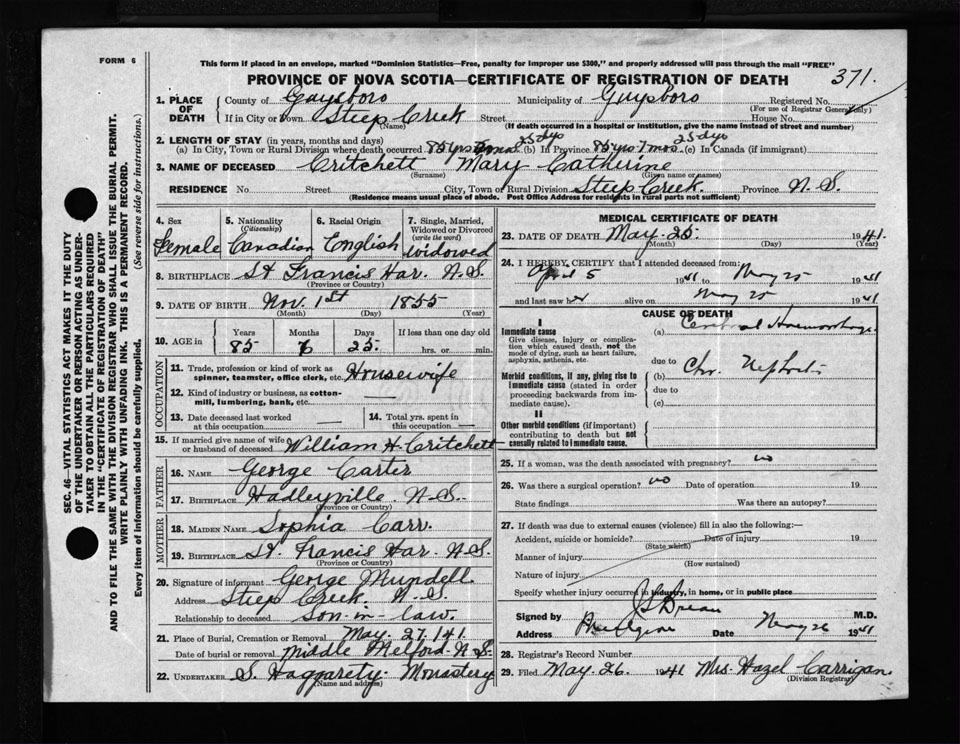 FORM 6
This form if placed in an envelope, marked "Dominion Statistics—Free, penalty for improper use $300," and properly addressed will pass through the mail "FREE"
PROVINCE OF NOVA SCOTIA—CERTIFICATE OF REGISTRATION OF DEATH 371.
1. PLACE OF DEATH County of Guysboro Municipality of Guysboro Registered No.
(For use of Registrar General only)
If in City or Town Steep Creek Street House No.
(Name) (If death occurred in a hospital or institution, give the name instead of street and number)
2. LENGTH OF STAY (in years, months and days)
(a) In City, Town or Rural Division where death occurred 85 yrs 7 mos 25 dys (b) In Province 85 yrs 7 mos 25 dys (c) In Canada (if immigrant)
3. NAME OF DECEASED Critchett Mary Catherine
(Surname) (Given name or names)
RESIDENCE No Street City, Town or Rural Division Steep Creek. Province N.S.
(Residence means usual place of abode. Post Office Address for residents in rural parts not sufficient)
4. Sex Female
5. Nationality (Citizenship) Canadian
6. Racial Origin English
7. Single, Married, Widowed or Divorced (write the word) Widowed
8. BIRTHPLACE St Francis Har. N.S.
(Province or Country)
9. DATE OF BIRTH Nov. 1st 1855
(Month) (Day) (Year)
10. AGE in Years 85 Months 6 Days 25 If less than one day old hrs. or min.
OCCUPATION
11. Trade, profession or kind of work as spinner, teamster, office clerk, etc. Housewife
12. Kind of industry or business, as cotton-mill, lumbering, bank, etc. —
13. Date deceased last worked at this occupation —
14. Total yrs. spent in this occupation —
15. If married give name of wife or husband of deceased William H. Critchett
FATHER
16. NAME George Carter
17. BIRTHPLACE Hadleyville N.S.
MOTHER
18. MAIDEN NAME Sophia Carr.
19. BIRTHPLACE St. Francis Har. N.S.
(Province or Country)
20. Signature of informant George Mundell
Address Steep Creek. N.S.
Relationship to deceased son in law.
21. Place of Burial, Cremation or Removal May. 27. 141
Date of burial or removal Middle Melford N.S.
22. UNDERTAKER S. Haggarety Monastery
(Name and address)
MEDICAL CERTIFICATE OF DEATH
23. DATE OF DEATH May. 25. 1941
(Month) (Day) (Year)
24. I HEREBY CERTIFY that I attended deceased from:
April 5 1941 to May 25 1941
and last saw her alive on May 25 1941
CAUSE OF DEATH
I
Immediate cause (a) Cerebral Haemorrhage
Give disease, injury or complication which caused death, not the mode of dying, such as heart failure, asphyxia, asthenia, etc.
due to
Morbid conditions, if any, giving rise to immediate cause (stated in order proceeding backwards from immediate cause). (b) Chr. Nephritis
due to
(c)
II
Other morbid conditions (if important) contributing to death but not causally related to immediate cause.
25. If a woman, was the death associated with pregnancy? no
26. Was there a surgical operation? no Date of operation 19
State findings Was there an autopsy?
27. If death was due to external causes (violence) fill in also the following:—
Accident, suicide or homicide? Date of injury 19
(State which)
Manner of injury
(How sustained)
Nature of injury
Specify whether injury occurred in industry, in home, or in public place
Signed by M.D.
Address Date May 26 1941
28. Registrar's Record Number
29. Filed May. 26 1941 Mrs. Hazel Carrigan.
(Division Registrar)
SEC. 46—VITAL STATISTICS ACT MAKES IT THE DUTY
OF THE UNDERTAKER OR PERSON ACTING AS UNDER-
TAKER TO OBTAIN ALL THE PARTICULARS REQUIRED
IN THE "CERTIFICATE OF REGISTRATION OF DEATH"
AND TO FILE THE SAME WITH THE DIVISION REGISTRAR WHO SHALL ISSUE THE BURIAL PERMIT.
WRITE PLAINLY WITH UNFADING INK. THIS IS A PERMANENT RECORD.
Every item of information should be carefully supplied. (See reverse side for instructions.)